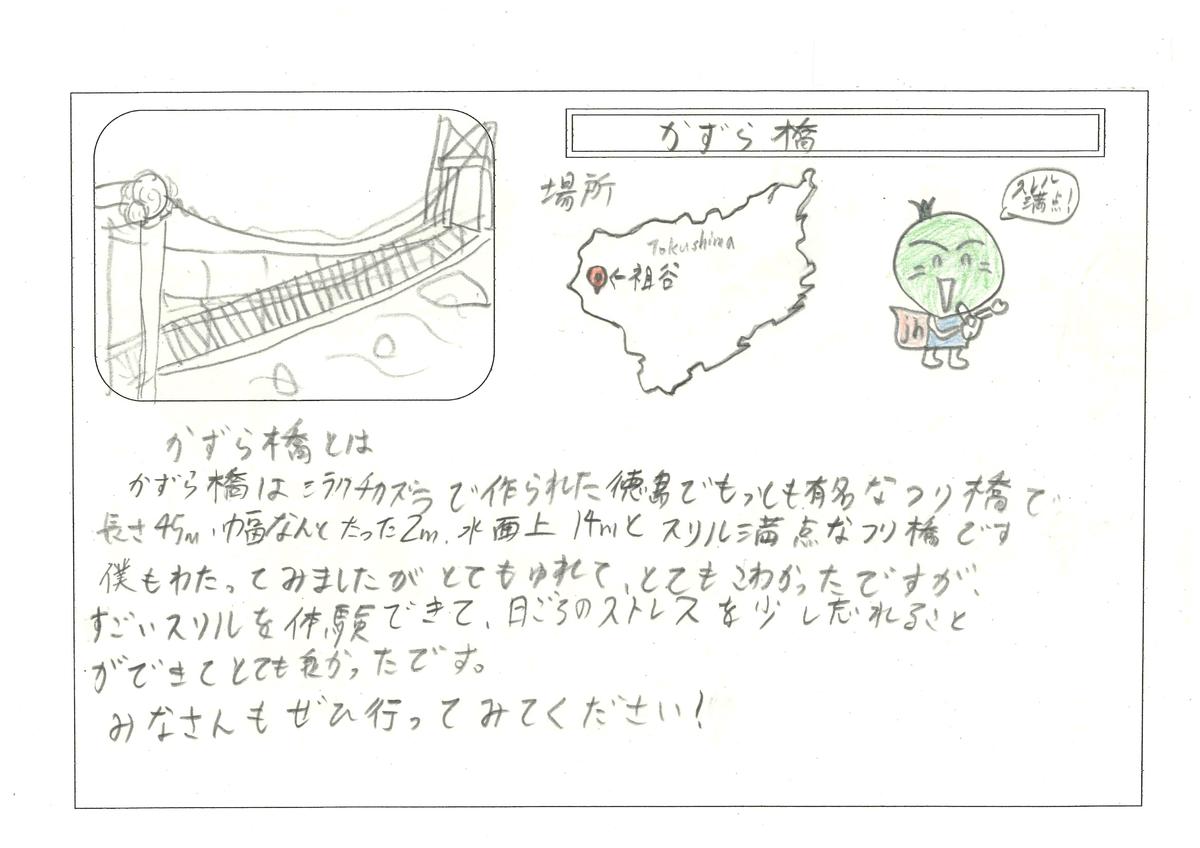 かずら橋
場所
Tokushima
祖谷
スリル
満点!
jh
かずら橋とは
かずら橋はシラクチカズラで作られた徳島でもっとも有名なつり橋で
長さ45m、幅なんとたった2m、水面上14mとスリル満点なつり橋です
僕もわたってみましたがとてもゆれて、とてもこわかったですが、
すごいスリルを体験できて、日ごろのストレスを少し忘れること
ができてとても良かったです。
みなさんもぜひ行ってみてください!